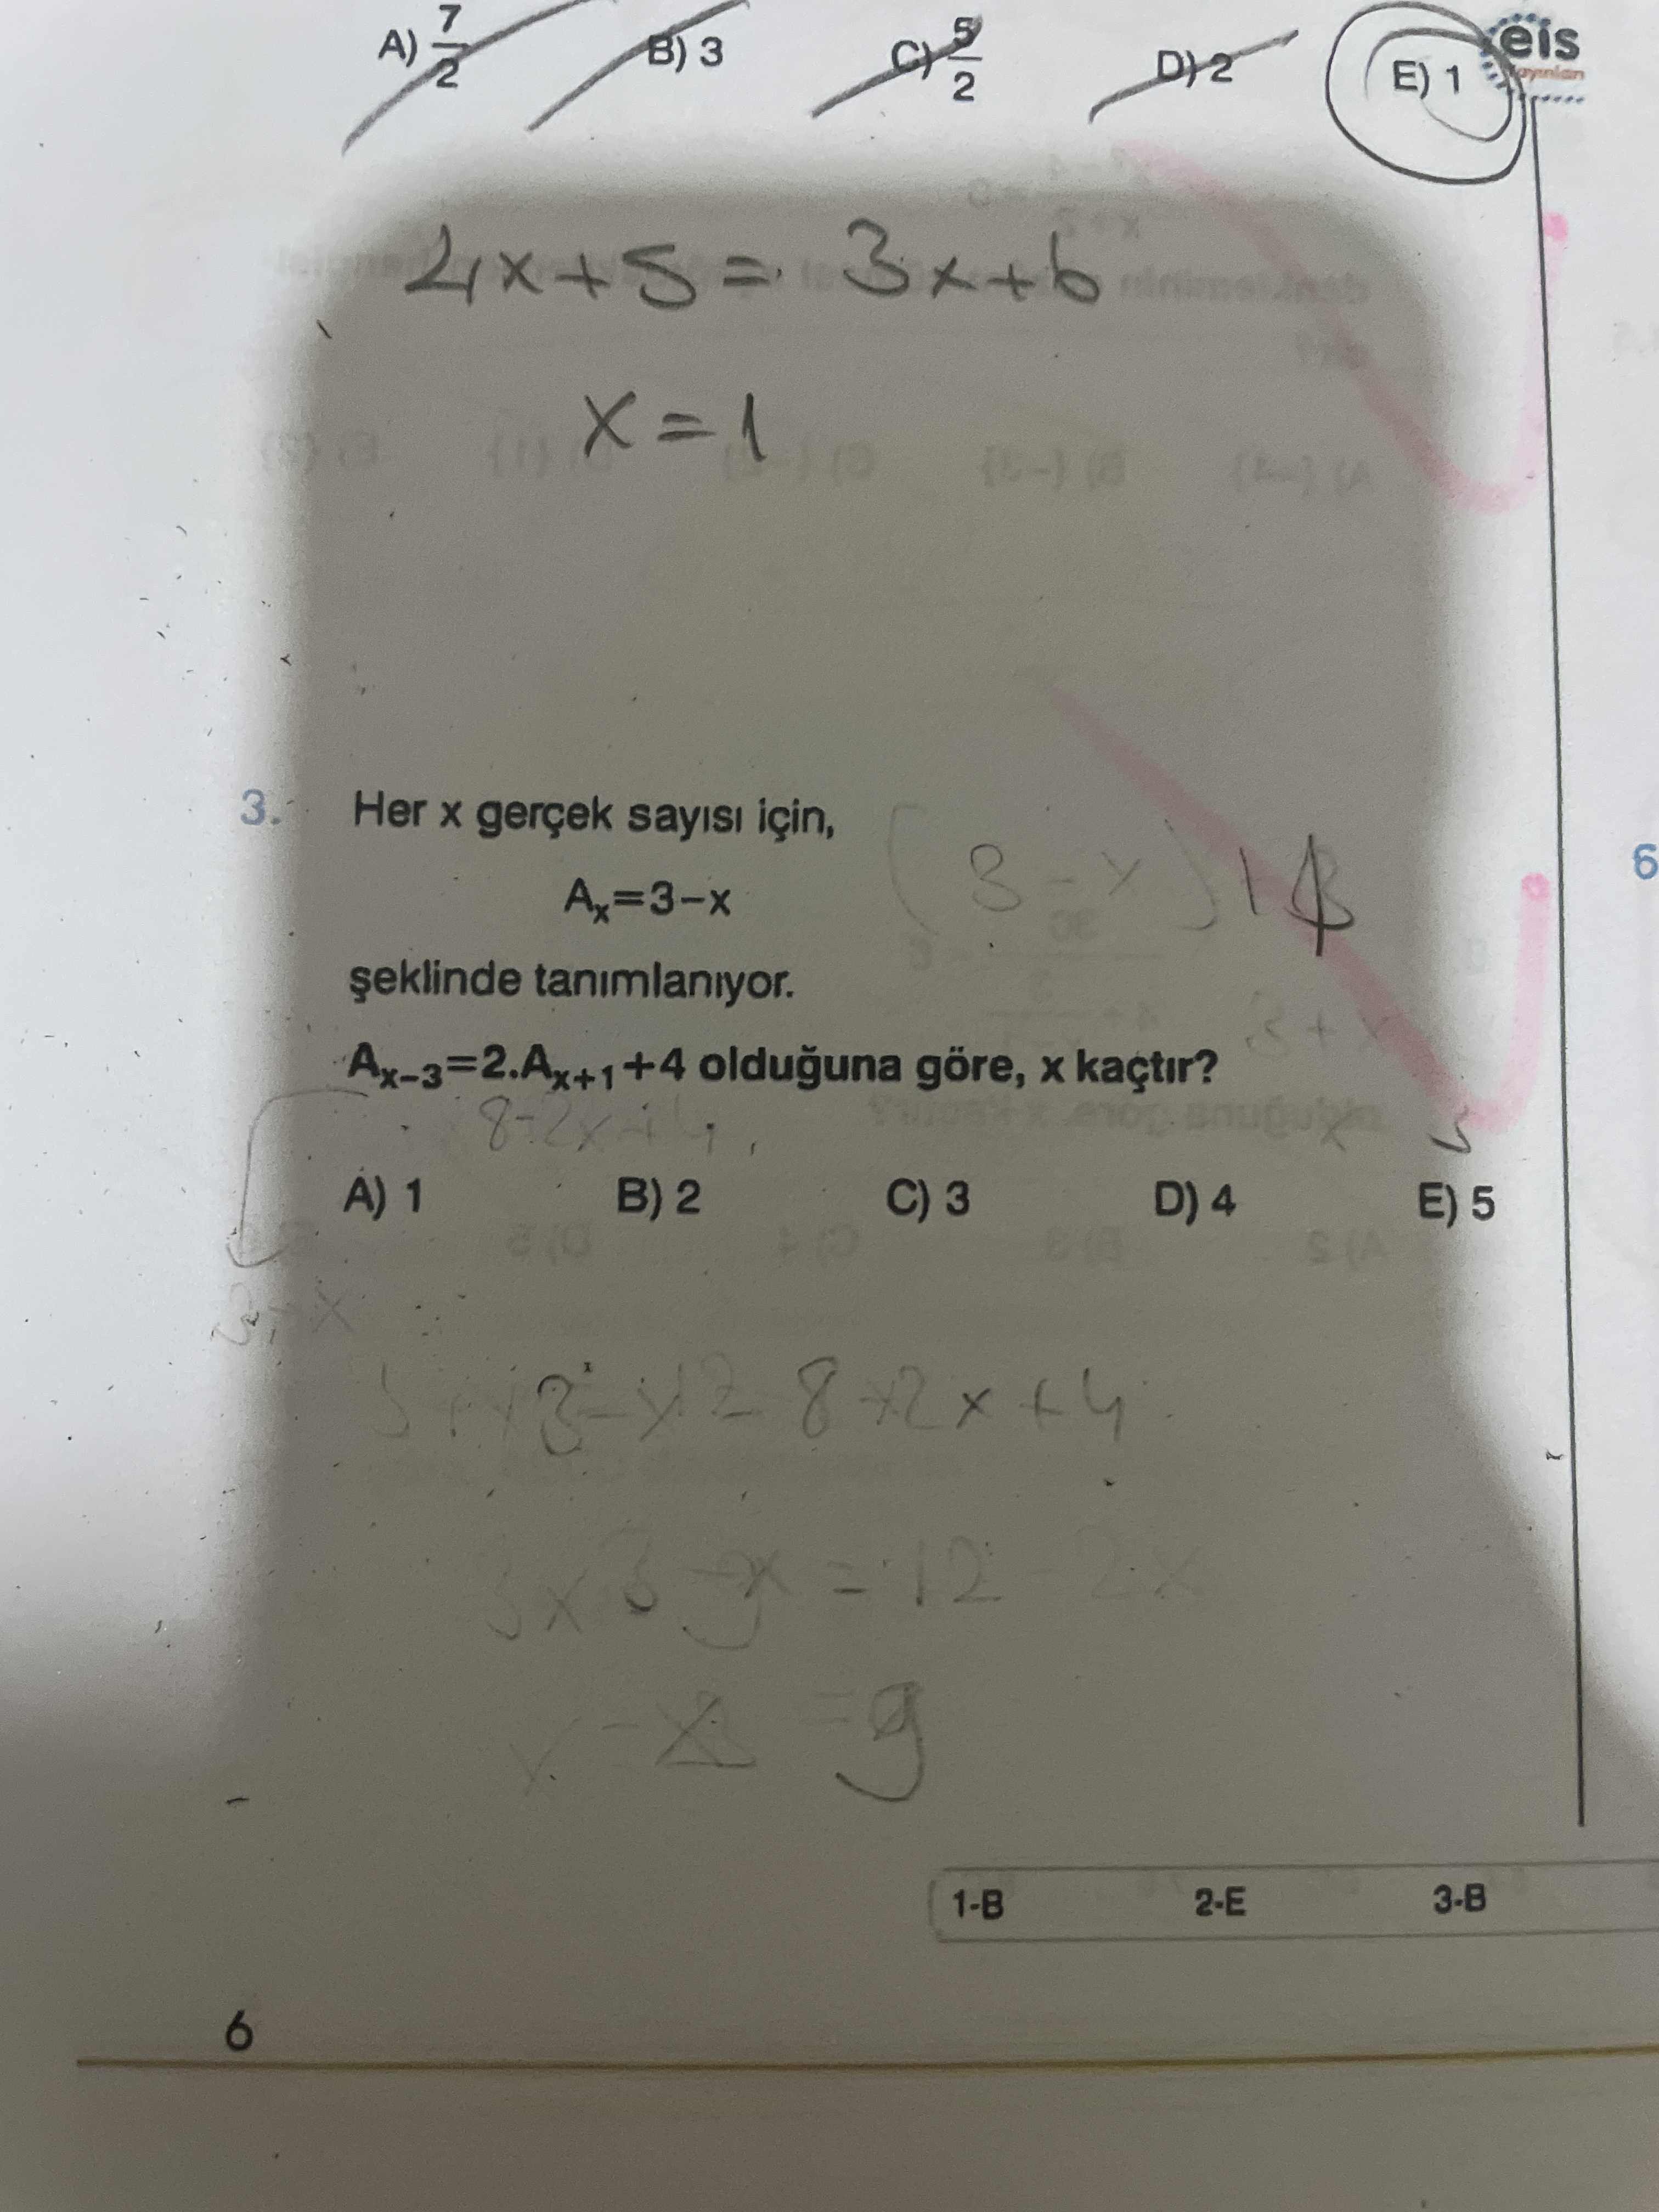 A) 7/2 B) 3 C) 5/2 D) 2 E) 1
eis
yayınları
4x+5=3x+6
x=1
3. Her x gerçek sayısı için,
Aₓ=3−x
(3-x)
şeklinde tanımlanıyor.
x+3
Aₓ₋₃=2.Aₓ₊₁+4 olduğuna göre, x kaçtır?
8-2x+4
A) 1 B) 2 C) 3 D) 4 E) 5
8+2x+4
=12-2x
=9
1-B 2-E 3-B
6
6